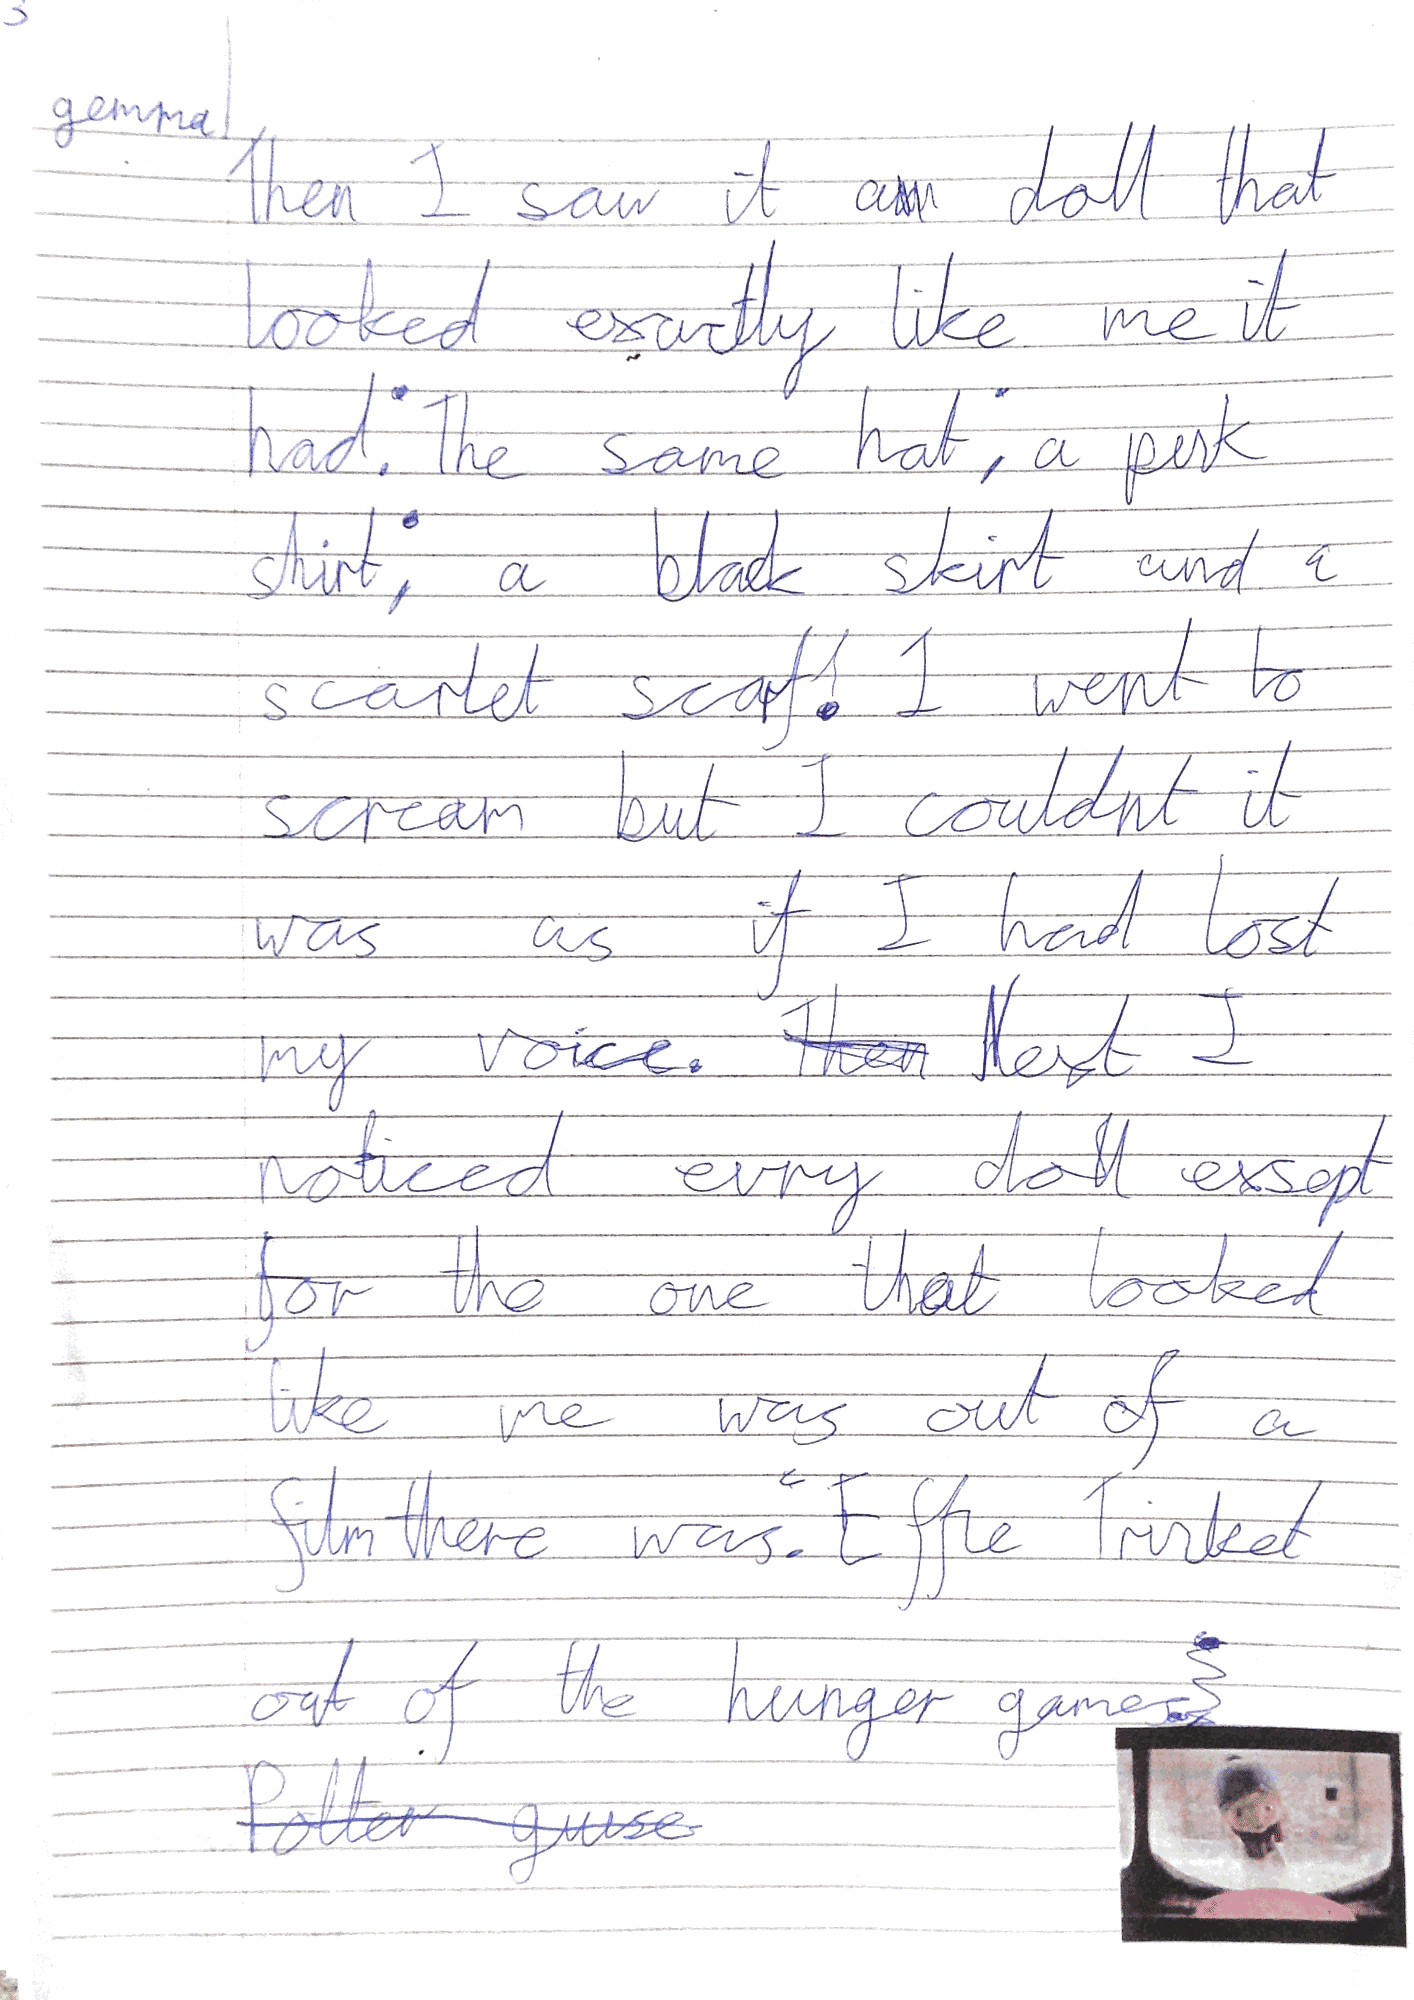 gemma
Then I saw it a doll that
looked exactly like me it
had: The same hat; a perk
shirt; a black skirt and a
scarlet scarf! I went to
scream but I couldnt it
was as if I had lost
my voice. Then Next I
noticed evry doll exsept
for the one that looked
like me was out of a
film there was. "Effie Trinket
out of the hunger games
Potter guise